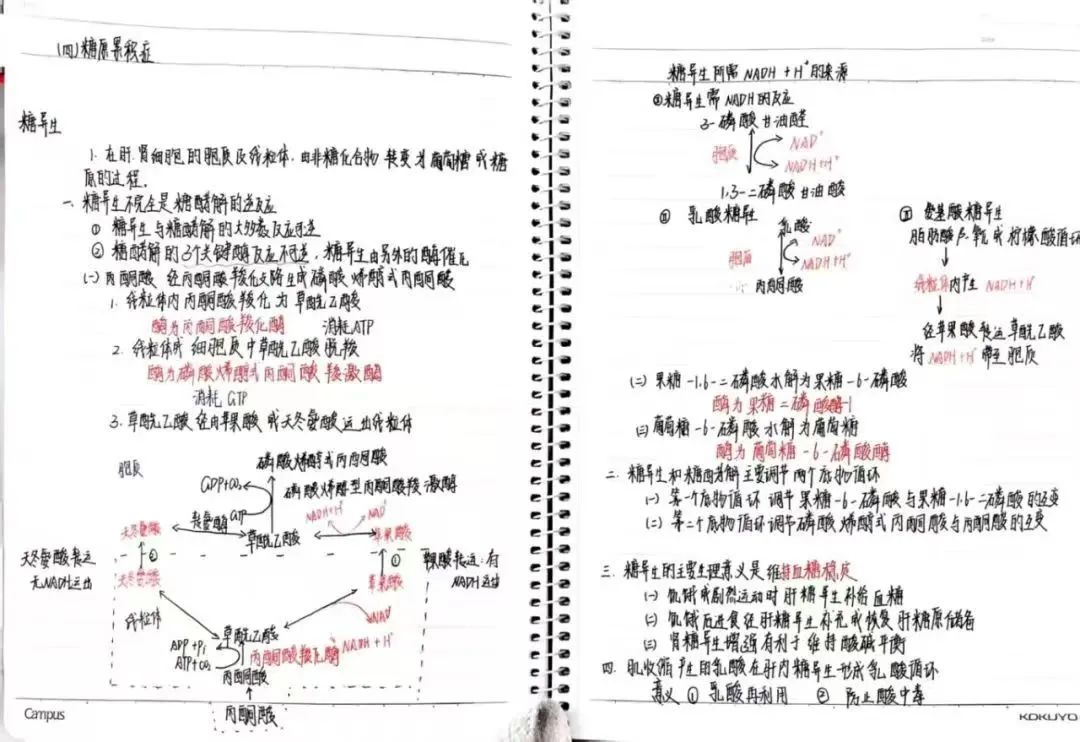 (四)糖原累积症
糖异生
1. 在肝.肾细胞的胞质及线粒体.由非糖化合物转变为葡萄糖或糖
原的过程.
一. 糖异生不完全是糖酵解的逆反应
① 糖异生与糖酵解的大多数反应可逆
② 糖酵解的3个关键酶反应不可逆, 糖异生由另外的酶催化
(一)丙酮酸 经丙酮酸羧化支路生成磷酸烯醇式丙酮酸
1. 线粒体内丙酮酸羧化为草酰乙酸
酶为丙酮酸羧化酶 消耗ATP
2. 线粒体或细胞质中草酰乙酸脱羧
酶为磷酸烯醇式丙酮酸羧激酶
消耗 GTP
3. 草酰乙酸经由苹果酸或天冬氨酸运出线粒体
胞质
磷酸烯醇式丙酮酸
GDP+CO₂
磷酸烯醇型丙酮酸羧激酶
GTP
NADH+H⁺
NAD⁺
转氨酶
天冬氨酸
草酰乙酸
苹果酸
天冬氨酸转运
无NADH运出
②
①
苹果酸转运:有
NADH运出
天冬氨酸
苹果酸
线粒体
NAD⁺
草酰乙酸
NADH + H⁺
ADP+Pi
ATP+CO₂
丙酮酸羧化酶
丙酮酸
丙酮酸
Campus
糖异生所需 NADH + H⁺的来源
①糖异生需NADH的反应
3-磷酸甘油醛
胞质
NAD⁺
NADH+H⁺
1,3-二磷酸甘油酸
乳酸糖异生
乳酸
胞质
NAD⁺
NADH+H⁺
丙酮酸
氨基酸糖异生
脂肪酸β氧或柠檬酸循环
线粒体内产生 NADH+H⁺
经苹果酸转运草酰乙酸
将NADH+H⁺带至胞质
(二)果糖-1.6-二磷酸水解为果糖-6-磷酸
酶为果糖二磷酸酶-1
(三)葡萄糖-6-磷酸水解为葡萄糖
酶为葡萄糖-6-磷酸酶
二. 糖异生和糖酵解主要调节两个底物循环
(一) 第一个底物循环调节果糖-6-磷酸与果糖-1.6-二磷酸的互变
(二) 第二个底物循环调节磷酸烯醇式丙酮酸与丙酮酸的互变
三. 糖异生的主要生理意义是维持血糖稳定
(一) 饥饿或剧烈运动时肝糖异生补给血糖
(二) 饥饿后进食经肝糖异生补充或恢复肝糖原储备
(三) 肾糖异生增强有利于维持酸碱平衡
四. 肌收缩产生的乳酸在肝内糖异生形成乳酸循环
意义 ① 乳酸再利用 ② 防止酸中毒
KOKUYO